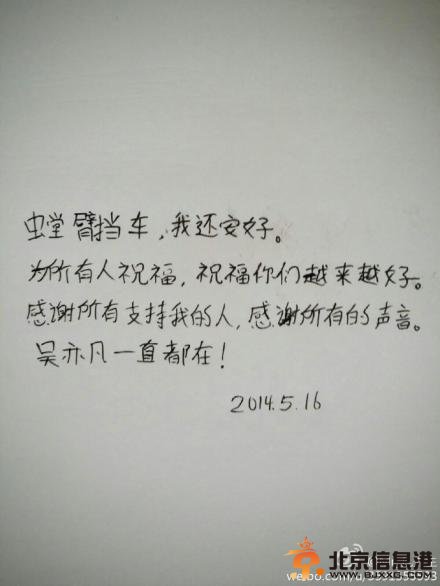 螳臂挡车，我还安好。
为所有人祝福，祝福你们越来越好。
感谢所有支持我的人，感谢所有的声音。
吴亦凡一直都在！
2014.5.16
北京信息港
WWW.BJXXG.COM